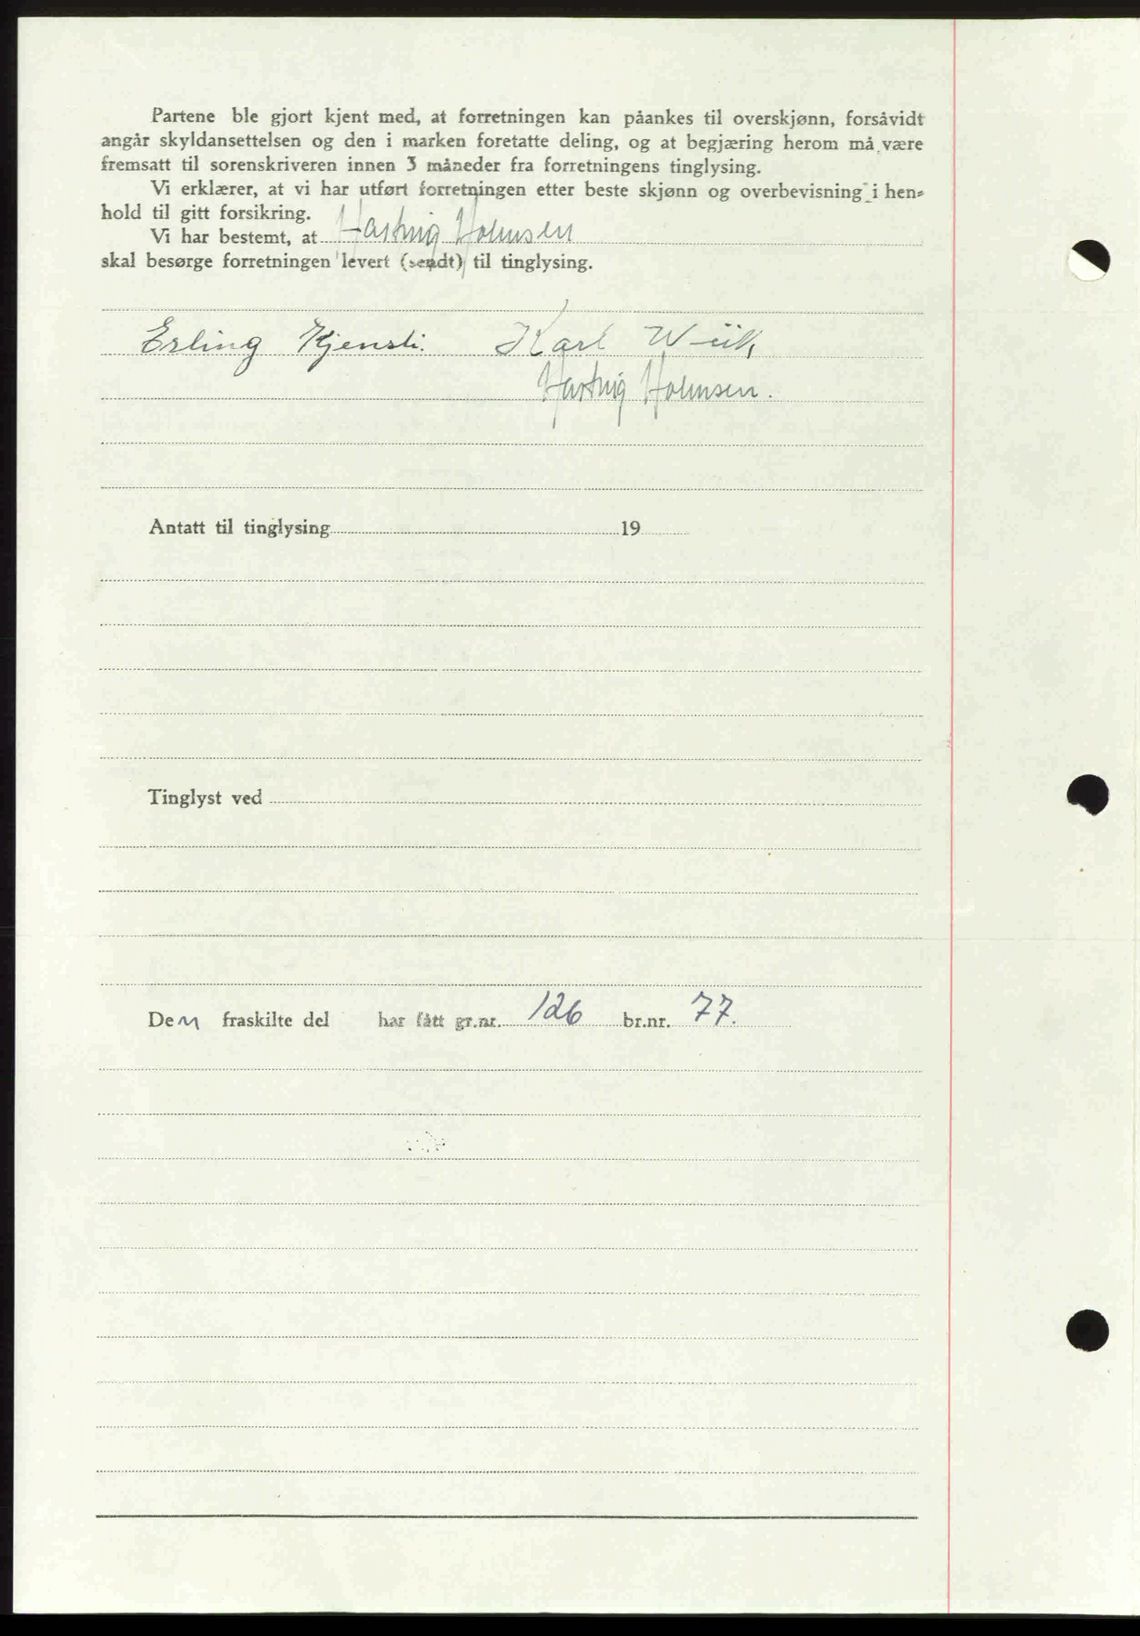 Partene ble gjort kjent med, at forretningen kan påankes til overskjønn, forsåvidt
angår skyldansettelsen og den i marken foretatte deling, og at begjæring herom må være
fremsatt til sorenskriveren innen 3 måneder fra forretningens tinglysing.
Vi erklærer, at vi har utført forretningen etter beste skjønn og overbevisning i hen-
hold til gitt forsikring.
Vi har bestemt, at Hartvig Holmsen
skal besørge forretningen levert (sendt) til tinglysing.
Erling Kjensli. Karl Wiik
Hartvig Holmsen.
Antatt til tinglysing 19
Tinglyst ved
Den fraskilte del har fått gr.nr. 126 br.nr. 77.